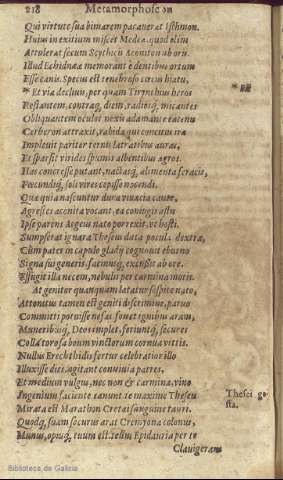 218 Metamorphoseon
Qui virtute sua bimarem pacauerat Isthmon.
Huius in exitium miscet Medea, quod olim
Attulerat secum Scythicis Aconiton ab oris.
Illud Echidnææ memorant è dentibus ortum
Esse canis. Specus est tenebroso cæcus hiatu,
* Et via decliuis, per quam Tirynthius heros
Restantem, contraq; diem, radiosq; micantes
Obliquantem oculos nexis adamante catenis
Cerberon attraxit, rabida qui concitus ira
Impleuit pariter ternis latratibus auras,
Et sparsit virides spumis albentibus agros.
Has concresse putant, nactasq; alimenta feracis,
Fœcundiq; soli vires cepisse nocendi.
Quæ quia nascuntur dura viuacia caute,
Agrestes aconita vocant. ea coniugis astu
Ipse parens Aegeus nato porrexit, vt hosti.
Sumpserat ignara Theseus data pocula dextra,
Cum pater in capulo gladij cognouit eburno
Signa sui generis: facinusq; excussit ab ore.
Effugit illa necem, nebulis per carmina motis.
At genitor quanquam lætatur sospite nato,
Attonitus tamen est, ingens discrimine paruo
Committi potuisse nefas. fouet ignibus aras,
Muneribusq; Deos implet, feriuntq; secures
Colla torosa boum vinctorum cornua vittis.
Nullus Erechthidis fertur celebratior illo
Illuxisse dies. agitant conuiuia patres,
Et medium vulgus, nec non & carmina, vino
Ingenium faciente canunt. te maxime Theseu
Thesei gesta.
Mirata est Marathon Cretæi sanguine tauri.
Quodq; suam securus arat Cromyona colonus,
Munus, opusq; tuum est. tellus Epidauria per te
Clauigeram
Biblioteca de Galicia